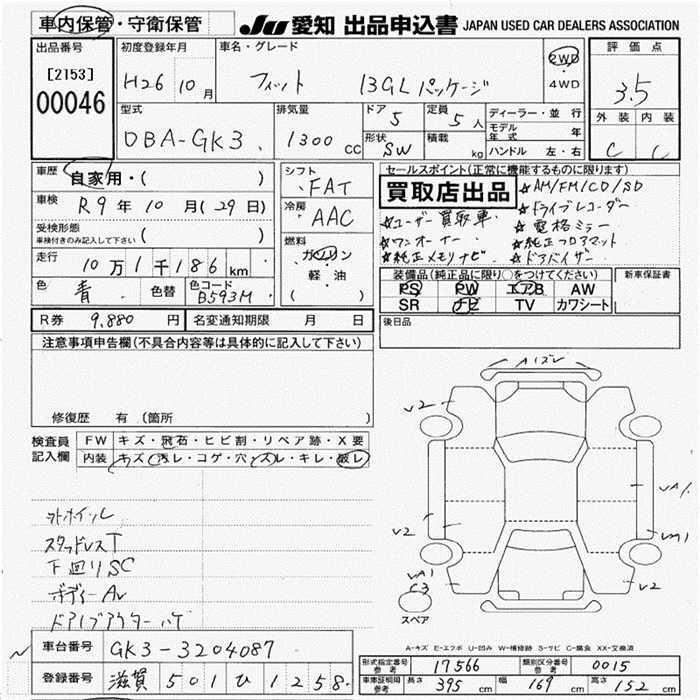 車内保管・守衛保管 JU 愛知 出品申込書 JAPAN USED CAR DEALERS ASSOCIATION
出品番号 [2153] 00046
初度登録年月 H26 10月
車名・グレード フィット 13GLパッケージ
2WD・4WD
評価点 3.5
型式 DBA-GK3
排気量 1300 CC
ドア 5
定員 5人
形状 SW
積載 kg
ディーラー・並行
モデル年式 年
ハンドル 左・右
外装 C
内装 C
車歴 自家用・( )
車検 R9年10月(29日)
受検形態 車検付きのみ記入して下さい ( )
走行 10万1千186km
色 青 色替 色コード B593M
シフト FAT
冷房 AAC
燃料 ガソリン・軽油 ( )
セールスポイント(正常に機能するものに限ります)
買取店出品
☆AM/FM/CD/SD
☆ドライブレコーダー
☆ユーザー買取車
☆電格ミラー
☆ワンオーナー
☆純正フロアマット
☆純正メモリナビ
☆ドアバイザー
装備品(純正品に限り○をつけてください)
PS PW エアB AW
SR ナビ TV カワシート
新車保証書
後日品
R券 9,880円
名変通知期限 月 日
注意事項申告欄(不具合内容等は具体的に記入して下さい)
修復歴 有(箇所 )
検査員記入欄
FW キズ・飛石・ヒビ割・リペア跡・X要
内装 キズ・汚レ・コゲ・穴・スレ・キレ・破レ
スタッドレスT
下回りSC
Aイズレ
V2
V2
VA1
VA1
V2
VA1
C3
V2
スペア
A-キズ E-エクボ U-凹み W-補修跡 S-サビ C-腐食 XX-交換済
車台番号 GK3-3204087
登録番号 滋賀 501 ひ 1258
形式指定番号 参考 17566
類別区分番号 参考 0015
車庫証明用 参考 長さ 395cm 幅 169cm 高さ 152cm